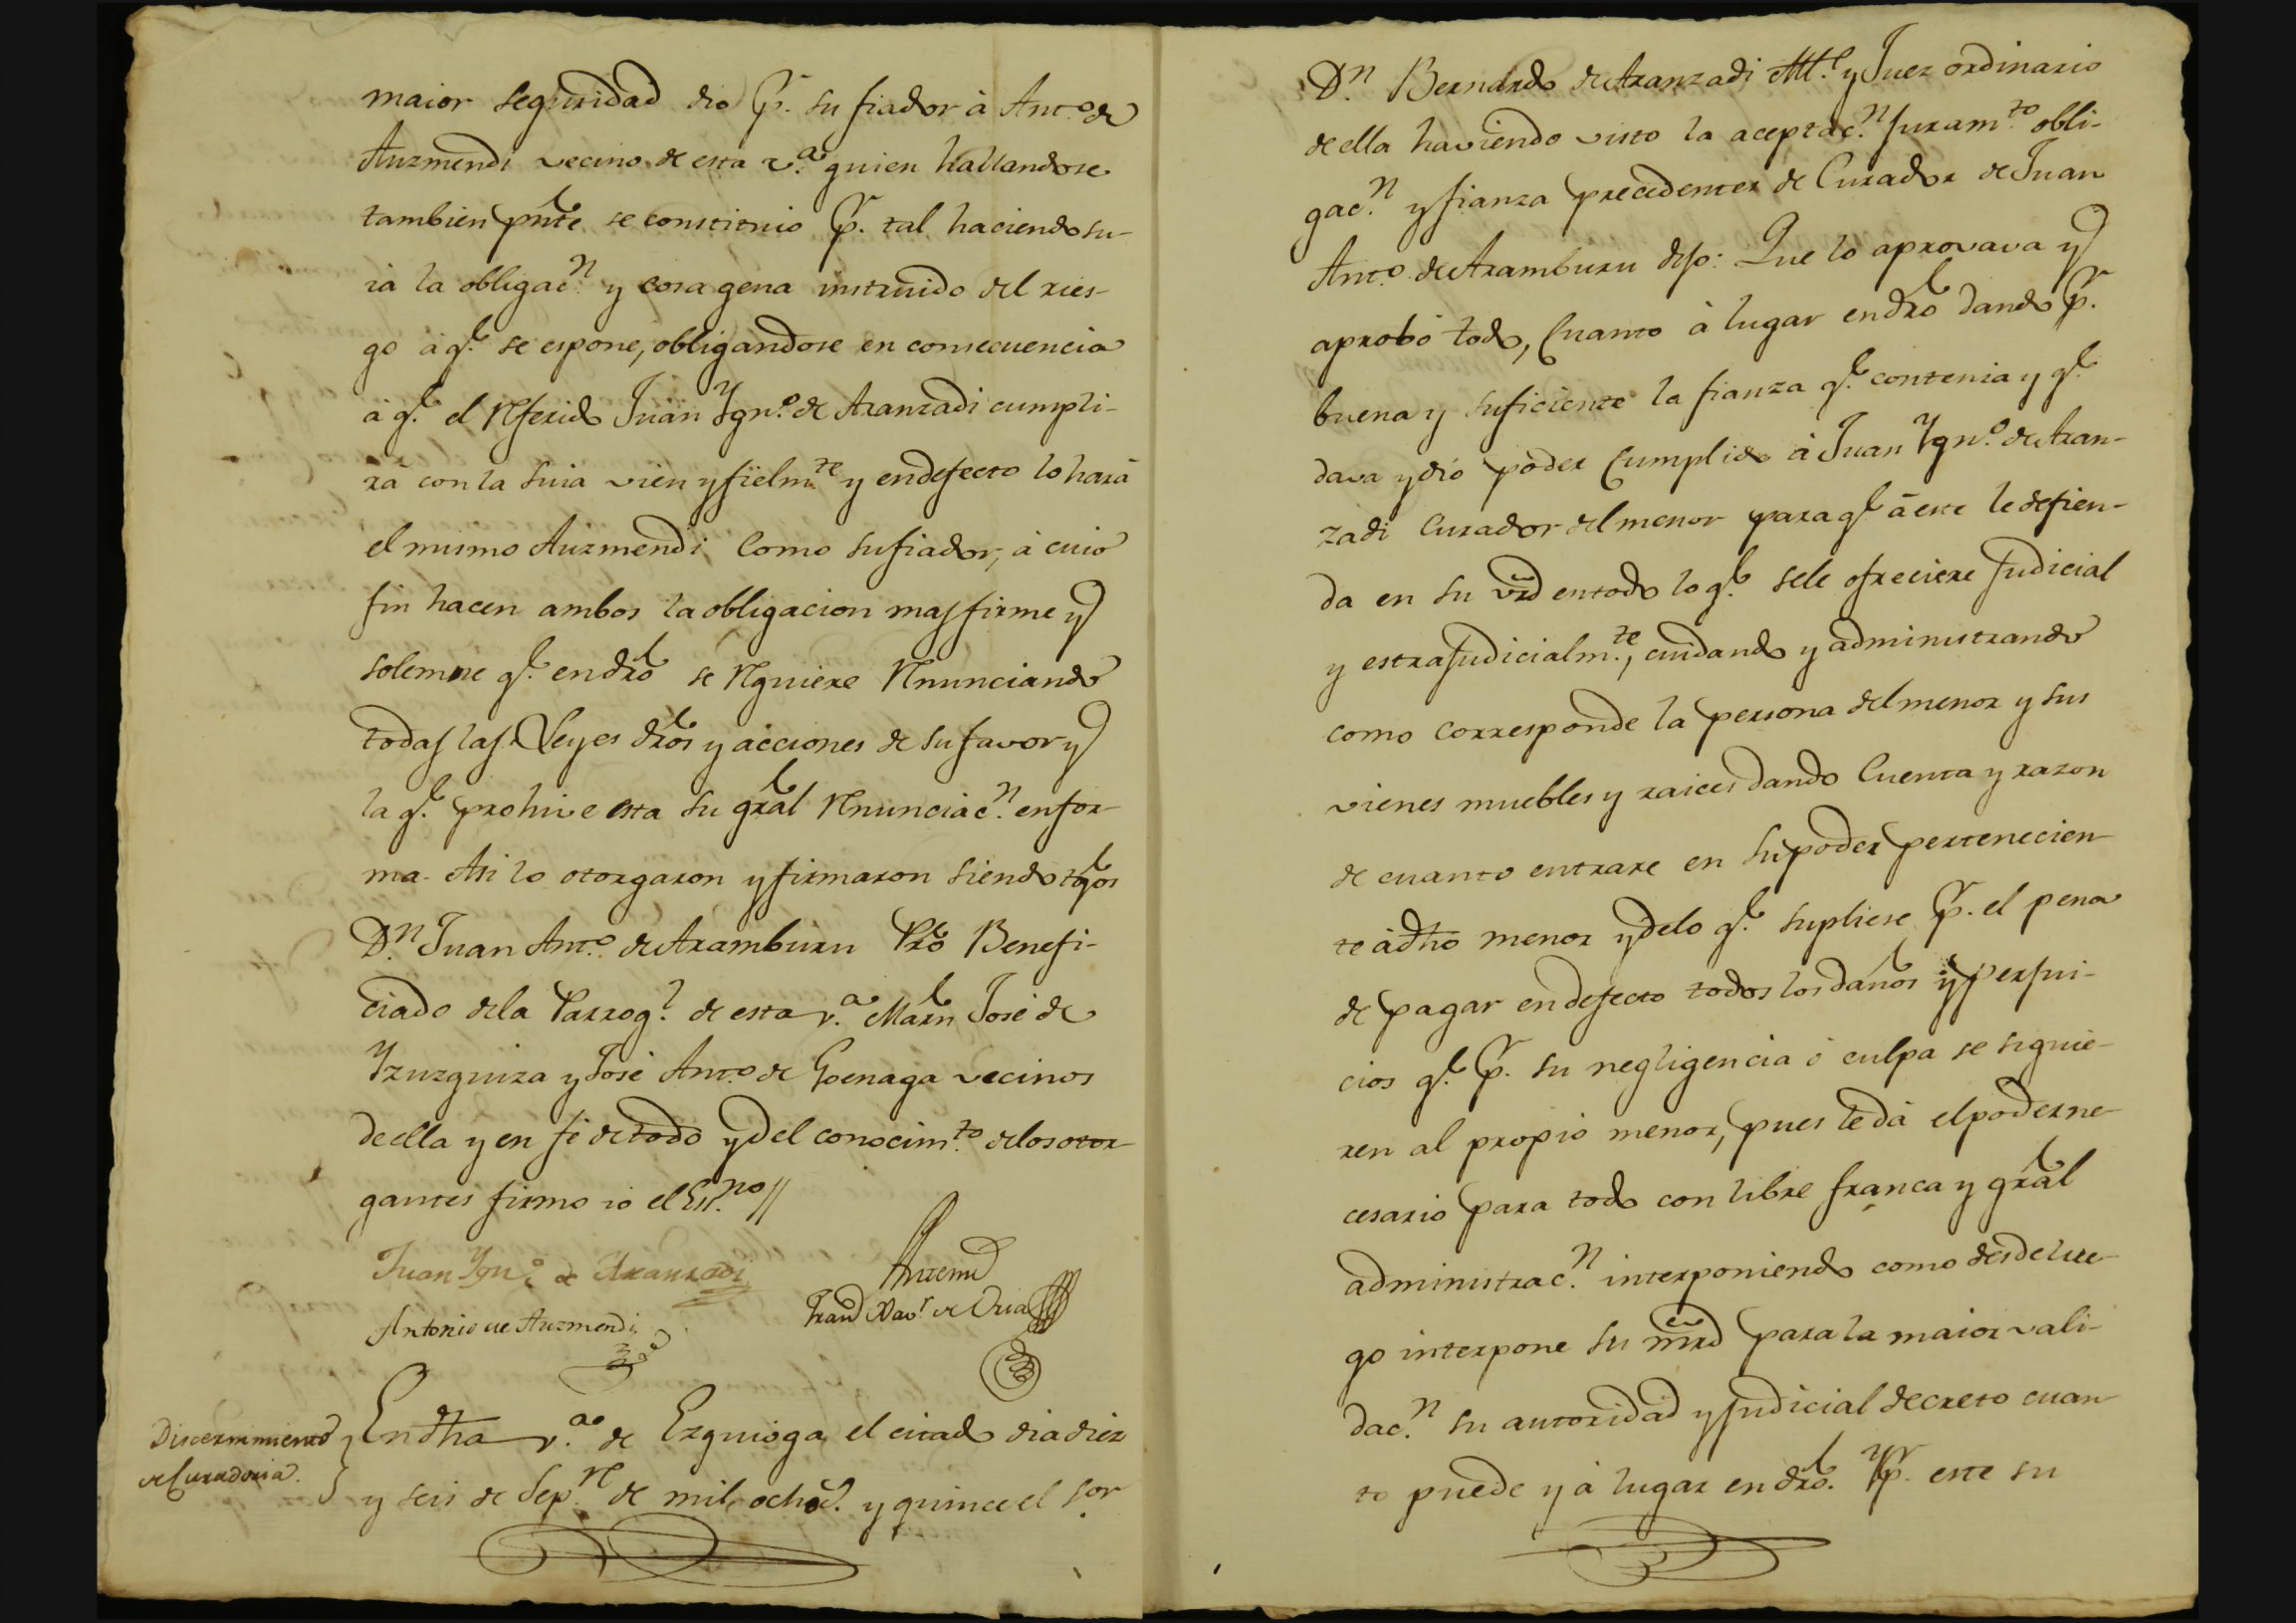 maior seguridad dio p.r su fiador à Ant.o de
Auzmendi vecino de esta v.a quien hallandose
tambien pnte se constituio p.r tal haciendo su-
ia la obligac.n y cosa agena instruido del ries-
go à q.e se espone, obligandose en consecuencia
à q.e el Referido Juan Ygn.o de Aranzadi cumpli-
rà con la suia vien y fielm.te y en defecto lo harà
el mismo Auzmendi como su fiador, à cuio
fin hacen ambos la obligacion mas firme y
solemne q.e en dro se Requiere Renunciando
todas las Leyes dros y acciones de su favor y
la q.e prohive esta su gral Renunciac.n en for-
ma. Asi lo otorgaron y firmaron siendo tgos
D.n Juan Ant.o de Aramburu Pro Benefi-
ciado de la Parroq.l de esta v.a Marn José de
Yzuzquiza y José Ant.o de Goenaga vecinos
de ella y en fé de todo y del conocim.to de los otor-
gantes firmo io el Es.no //
Juan Ygn.o de Aranzadi
Antemi
Antonio de Auzmendi
Fran.co Xav.r de Oria
Discernimiento
de Curaduria.
En dha v.a de Ezquioga el citado dia diez
y seis de Sep.re de mil ochoc.s y quince el S.or
D.n Bernardo de Aranzadi Alt.e y Juez ordinario
de ella haviendo visto la aceptac.n Juram.to obli-
gac.n y fianza precedentes de Curador de Juan
Ant.o de Aramburu dijo: Que lo aprovava y
aprobó todo, Cuanto à lugar en dro dando p.r
buena y suficiente la fianza q.e contenia y q.e
dava y dió poder Cumplido à Juan Ygn.o de Aran-
zadi Curador del menor para q.e à este le defien-
da en su vrd en todo lo q.e se le ofreciere Judicial
y estrajudicialm.te, cuidando y administrando
como corresponde la persona del menor y sus
vienes muebles y raices dando Cuenta y razon
de cuanto entrare en su poder pertenecien-
te à dho menor y de lo q.e supliese p.r el pena
de pagar en defecto todos los daños y perjui-
cios q.e p.r su negligencia ó culpa se siguie-
ren al propio menor, pues le dà el poder ne-
cesario para todo con libre franca y gral
administrac.n interponiendo como desde lue-
go interpone su mrd para la maior vali-
dac.n su autoridad y judicial decreto cuan-
to puede y à lugar en dro. Y p.r este su